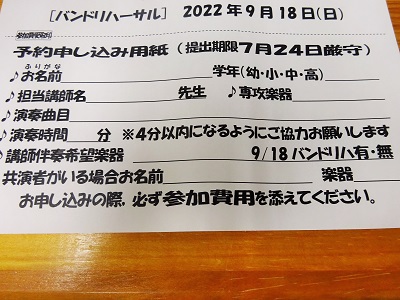 [バンドリハーサル] 2022年9月18日(日)
予約申し込み用紙(提出期限7月24日厳守)
ふりがな
♪お名前 学年(幼・小・中・高)
♪担当講師名 先生 ♪専攻楽器
♪演奏曲目
♪演奏時間 分 ※4分以内になるようにご協力お願いします
♪講師伴奏希望楽器 9/18バンドリハ有・無
共演者がいる場合お名前 楽器
お申し込みの際、必ず参加費用を添えてください。